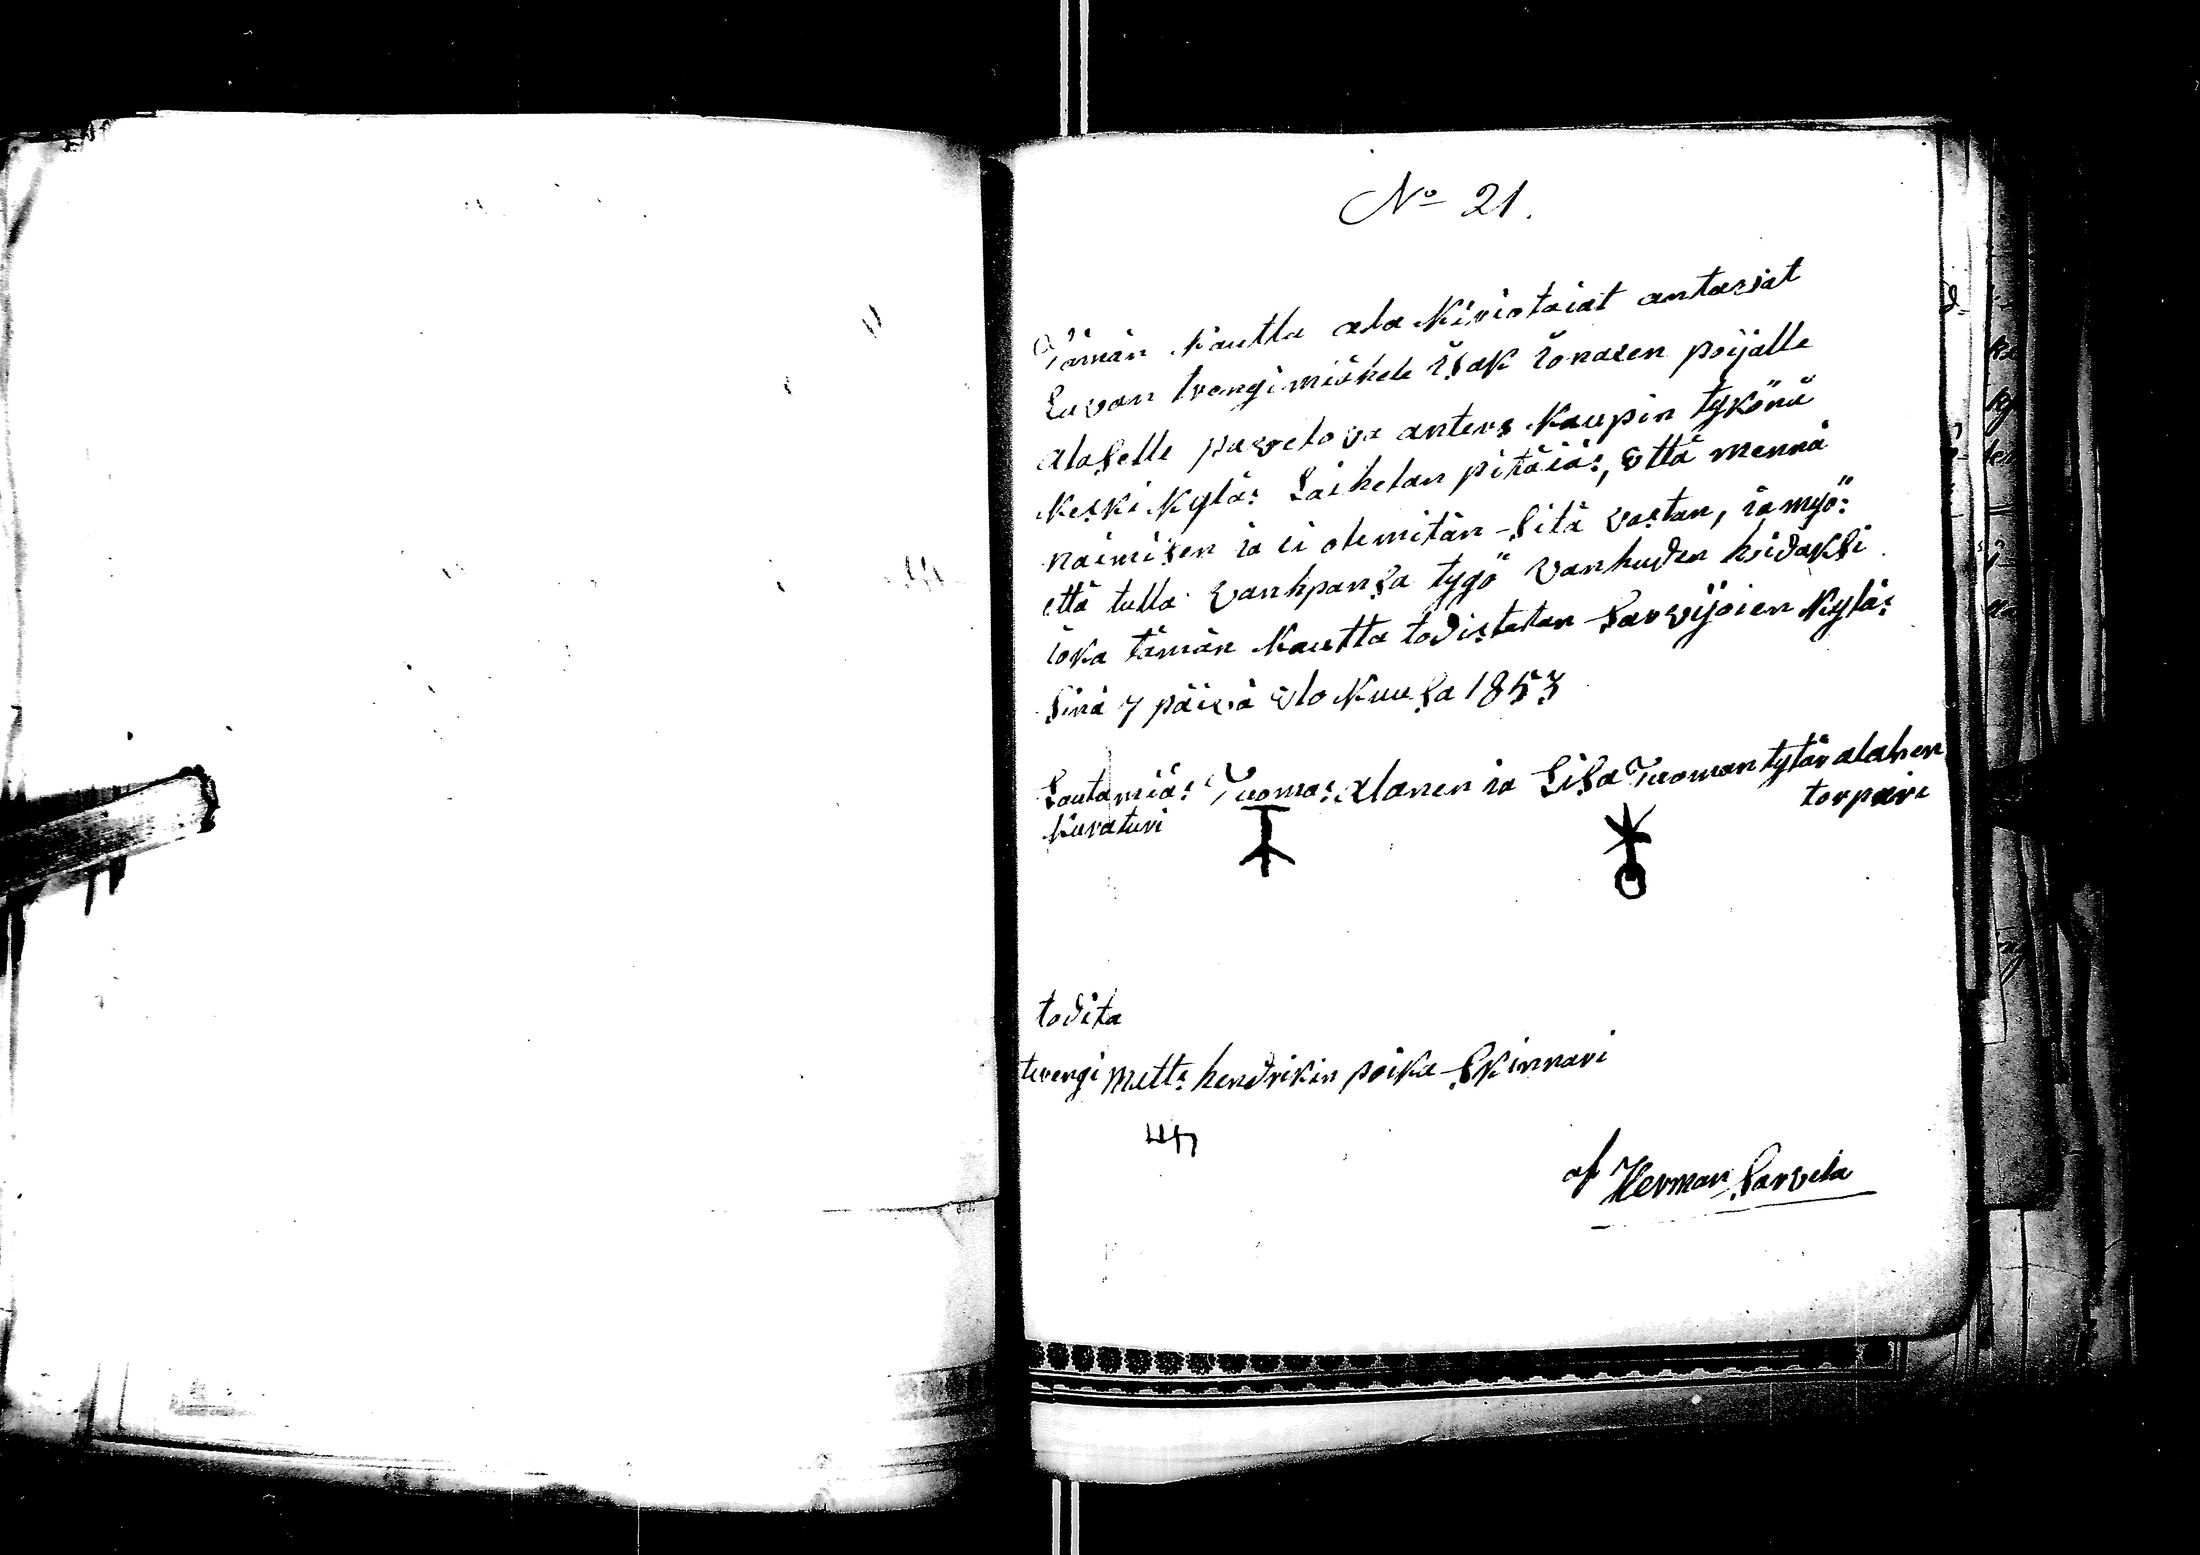 No 21.
Tämän kautta ala kiriotaiat antavat
Luvan trengimiähele isak ionasen poijalle
alaselle pavelova anters Kaupin tykönä
Keski kylä: Laihelan pitäiä:, että mennä
naimisen ia ei ole mitän sitä vastan, ia myö:
että tulla vanhpansa tygö vanhuden hoidaksi
ioka tämän kautta todistetan Sarvijoien kylä:
Sinä 7 päivä elo kuusa 1853
Lautamiä: Tuoma: alanen ia Lisa Tuoman tytär alahen
kuraturi
torpari
todita
trengi matts hendrikin poika Skinnari
af Herman Sarvela